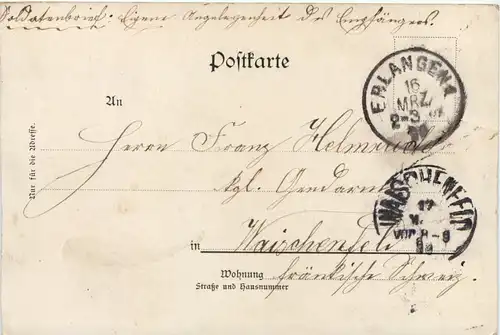 Soldatenbrief. Eigene Angelegenheit des Empfängers.
Postkarte
ERLANGEN 1
16
MRZ
2-3
An
Herrn Franz
kgl. Gendarm
WAISCHENFELD
17
VOR 8-9
in Waischenfeld
Nur für die Adresse.
Wohnung
Straße und Hausnummer
fränkische Schweiz.